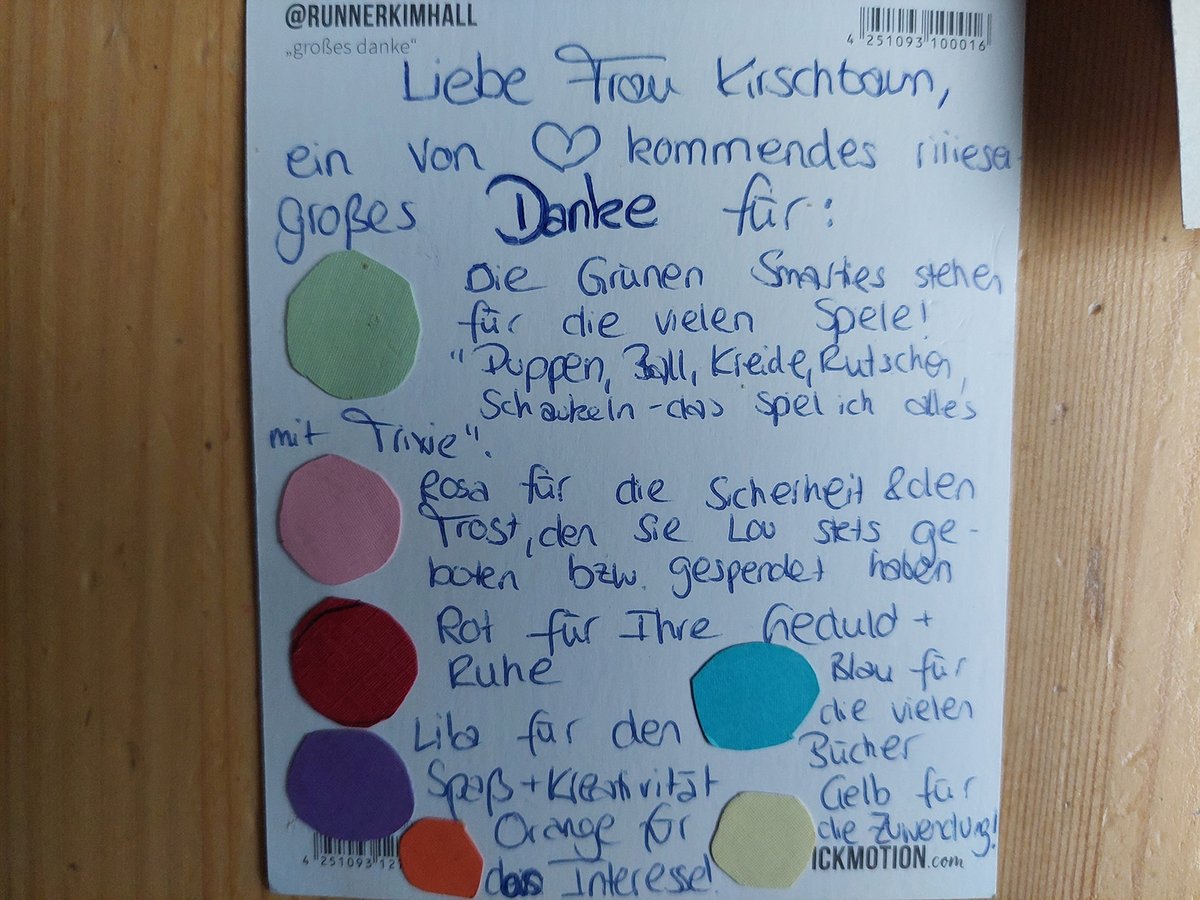 @RUNNERKIMHALL
„großes danke“
4 251093 100016
Liebe Frau Kirschbaum,
ein von ♡ kommendes riiiesen
großes Danke für:
Die Grünen Smarties stehen
für die vielen Spele!
"Puppen, Ball, Kreide, Rutschen,
Schaukeln - das spiel ich alles
mit Trixie".
Rosa für die Sicherheit & den
Trost, den Sie Lou stets ge-
boten bzw. gespendet haben
Rot für Ihre Geduld +
Ruhe
Blau für
die vielen
Bücher
Lila für den
Spaß + Kreativität
Gelb für
die Zuwendung!
Orange für
das Interesse!
4 251093 12
ICKMOTION.com